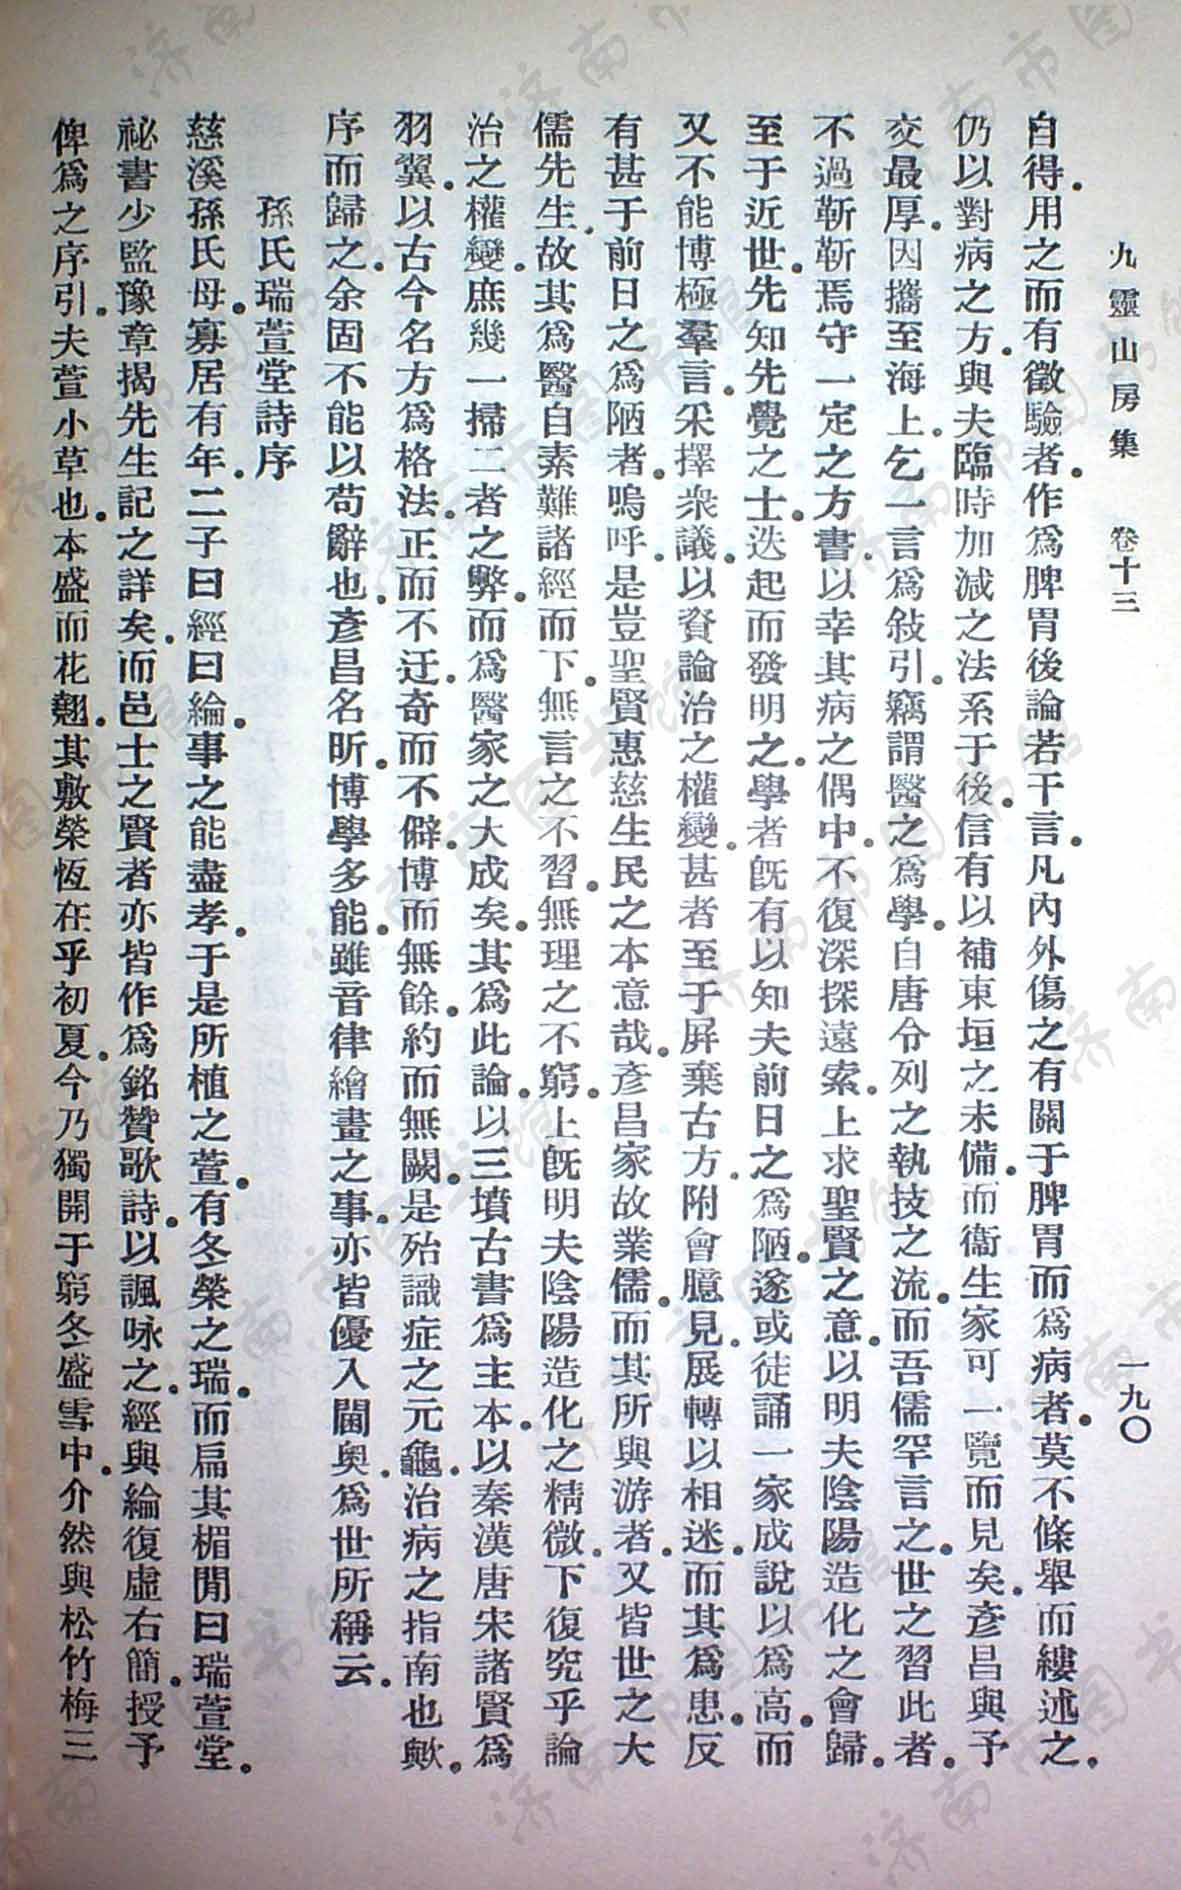 九靈山房集　卷十三　一九〇
自得。用之而有徵驗者。作爲脾胃後論若干言。凡內外傷之有關于脾胃而爲病者。莫不條舉而縷述之。
仍以對病之方。與夫臨時加減之法系于後。信有以補東垣之未備。而衞生家可一覽而見矣。彥昌與予
交最厚。因攜至海上。乞一言爲敍引。竊謂醫之爲學。自唐令列之執技之流。而吾儒罕言之。世之習此者。
不過靳靳焉守一定之方書。以幸其病之偶中。不復深探遠索。上求聖賢之意。以明夫陰陽造化之會歸。
至于近世。先知先覺之士。迭起而發明之。學者旣有以知夫前日之爲陋。遂或徒誦一家成說以爲高。而
又不能博極羣言。采擇衆議。以資論治之權變。甚者至于屛棄古方。附會臆見。展轉以相迷。而其爲患。反
有甚于前日之爲陋者。嗚呼。是豈聖賢惠慈生民之本意哉。彥昌家故業儒。而其所與游者。又皆世之大
儒先生。故其爲醫自素難諸經而下。無言之不習。無理之不窮。上旣明夫陰陽造化之精微。下復究乎論
治之權變。庶幾一掃二者之弊。而爲醫家之大成矣。其爲此論。以三墳古書爲主本。以秦漢唐宋諸賢爲
羽翼。以古今名方爲格法。正而不迂。奇而不僻。博而無餘。約而無闕。是殆識症之元龜。治病之指南也歟。
序而歸之。余固不能以苟辭也。彥昌名昕。博學多能。雖音律繪畫之事。亦皆優入閫奧。爲世所稱云。
孫氏瑞萱堂詩序
慈溪孫氏母。寡居有年。二子曰經曰綸。事之能盡孝。于是所植之萱。有冬榮之瑞。而扁其楣間曰瑞萱堂。
祕書少監豫章揭先生記之詳矣。而邑士之賢者亦皆作爲銘贊歌詩。以諷咏之。經與綸復虛右簡。授予
俾爲之序引。夫萱小草也。本盛而花翹。其敷榮恆在乎初夏。今乃獨開于窮冬盛雪中。介然與松竹梅三